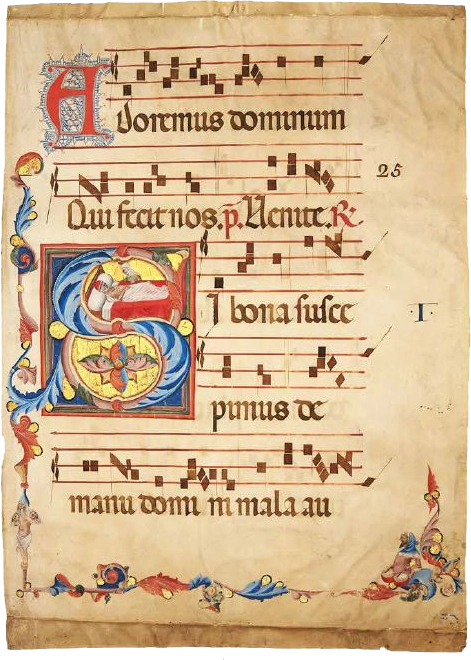 Adoremus dominum
25
Qui fecit nos. p̄. Venite. R.
I
SI bona susce
pimus de
manu domi ni mala au